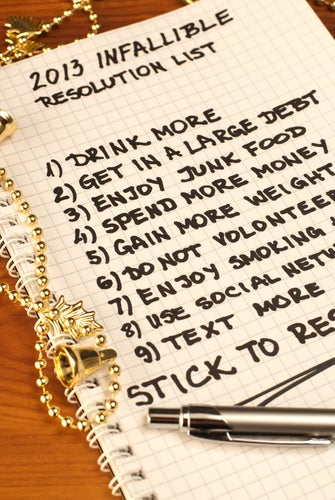 2013 INFALLIBLE
RESOLUTION LIST
1) DRINK MORE
2) GET IN A LARGE DEBT
3) ENJOY JUNK FOOD
4) SPEND MORE MONEY
5) GAIN MORE WEIGHT
6) DO NOT VOLONTEE
7) ENJOY SMOKING
8) USE SOCIAL NETW
9) TEXT MORE
STICK TO RES